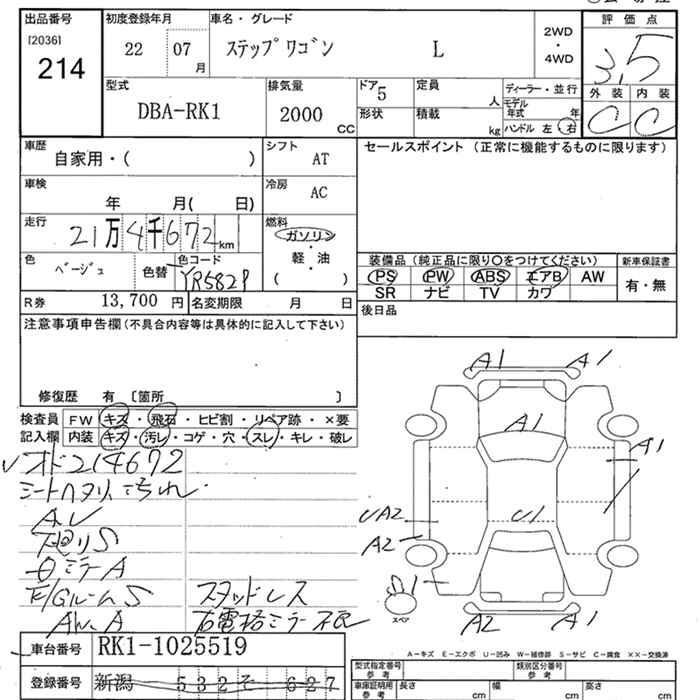 出品番号 初度登録年月 車名・グレード 評価点
[2036]
214
22 07 月
ステップワゴン L
2WD
・
4WD
3,5
型式 排気量 ドア 定員 ディーラー・並行
DBA-RK1 2000 CC 5 人
モデル
年式 年
形状 積載 kg ハンドル 左・右
外装 内装
C C
車歴 シフト セールスポイント (正常に機能するものに限ります)
自家用・( ) AT
車検 冷房
年 月( 日) AC
走行 燃料
21万4千672km ガソリン
・
軽・油
( )
色 色コード
ベージュ 色替 YR582P
装備品 (純正品に限り〇をつけてください) 新車保証書
PS PW ABS エアB AW 有・無
SR ナビ TV カワ
R券 13,700 円 名変期限 月 日
後日品
注意事項申告欄 (不具合内容等は具体的に記入して下さい)
修復歴 有 [箇所 ]
検査員 FW キズ・飛石・ヒビ割・リペア跡・×要
記入欄 内装 キズ・汚レ・コゲ・穴・スレ・キレ・破レ
オド214672
シートヘタリ、汚れ
下廻りS
ミラーA
E/GルームS スタッドレス
AW A 右電格ミラー不良
A1 A1
A1
A1
UA2 U1
A2
S1
スペア
A2 A1
A-キズ E-エクボ U-凹み W-補修跡 S-サビ C-腐食 ××-交換済
車台番号 RK1-1025519
登録番号 新潟 532 そ 627
型式指定番号 類別区分番号
参考 参考
車庫証明用 長さ 幅 高さ
参考 cm cm cm